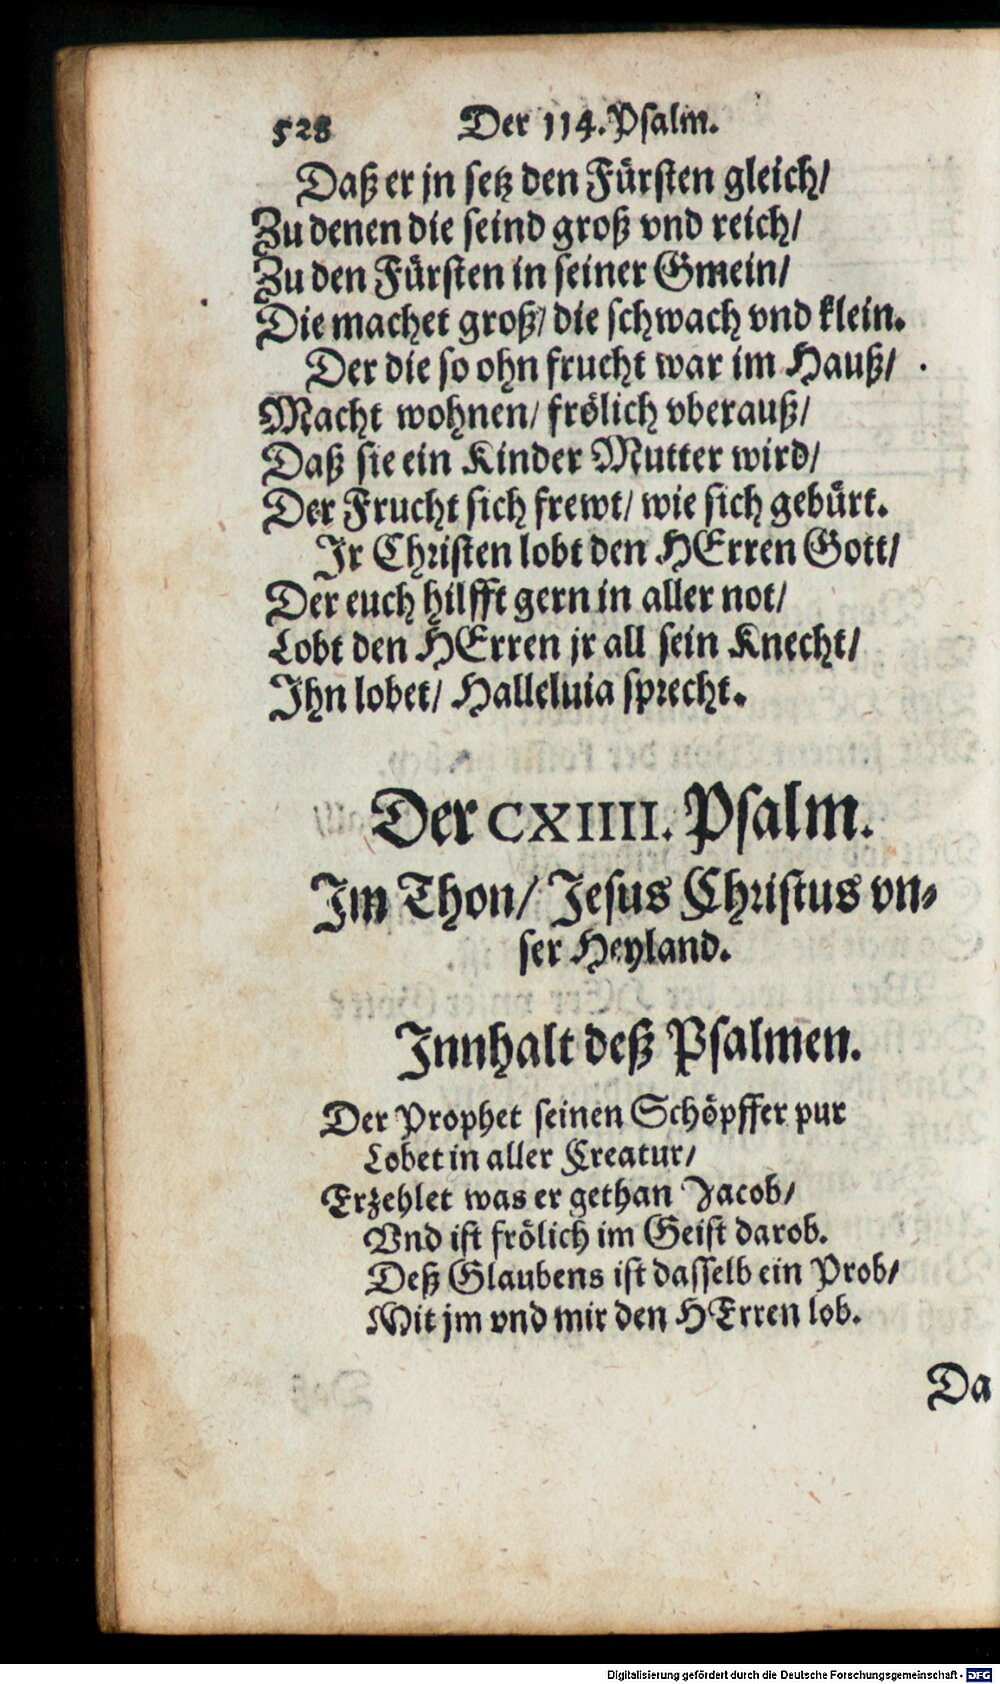 528 Der 114. Psalm.
Daß er jn setz den Fürsten gleich/
Zu denen die seind groß vnd reich/
Zu den Fürsten in seiner Gmein/
Die machet groß/ die schwach vnd klein.
Der die so ohn frucht war im Hauß/
Macht wohnen/ frölich vberauß/
Daß sie ein Kinder Mutter wird/
Der Frucht sich frewt/ wie sich gebürt.
Jr Christen lobt den HErren Gott/
Der euch hilfft gern in aller not/
Lobt den HErren jr all sein Knecht/
Jhn lobet/ Halleluia sprecht.
Der CXIIII. Psalm.
Jm Thon/ Jesus Christus vn-
ser Heyland.
Jnnhalt deß Psalmen.
Der Prophet seinen Schöpffer pur
Lobet in aller Creatur/
Erzehlet was er gethan Jacob/
Vnd ist frölich im Geist darob.
Deß Glaubens ist dasselb ein Prob/
Mit jm vnd mir den HErren lob.
Da
Digitalisierung gefördert durch die Deutsche Forschungsgemeinschaft - DFG